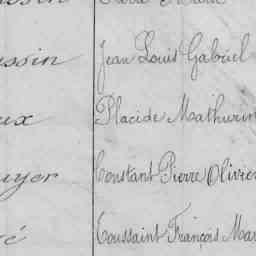 ssin Jean Louis Gabriel
ux Placide Mathurin
uyer Constant Pierre Olivier
é Toussaint François Mar